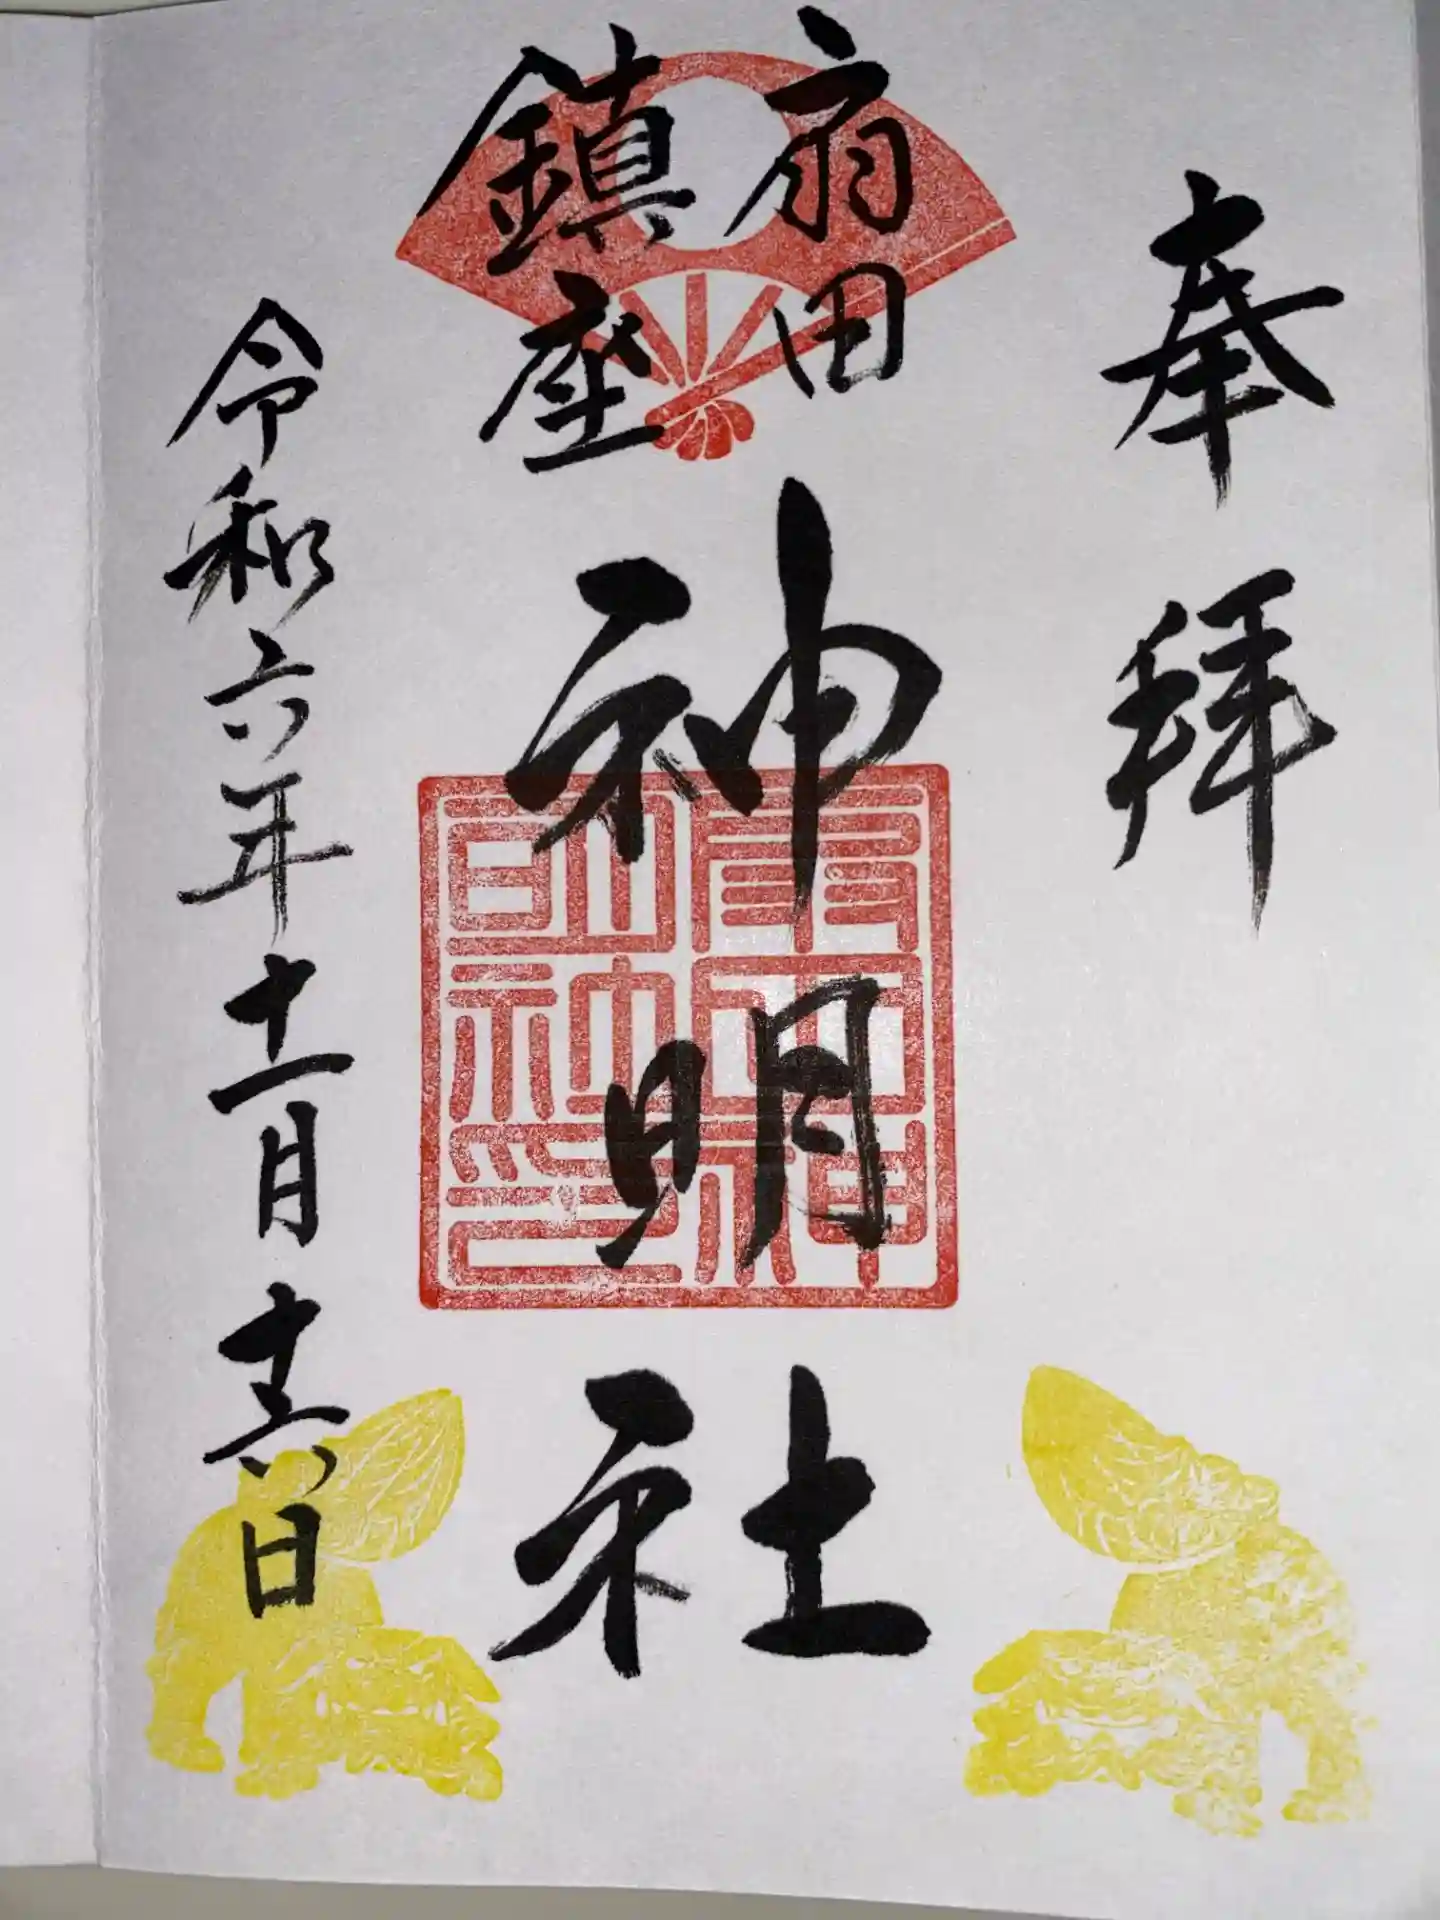 奉拝
扇田
鎮座
神明社
扇田神
明社印
令和六年十一月十六日